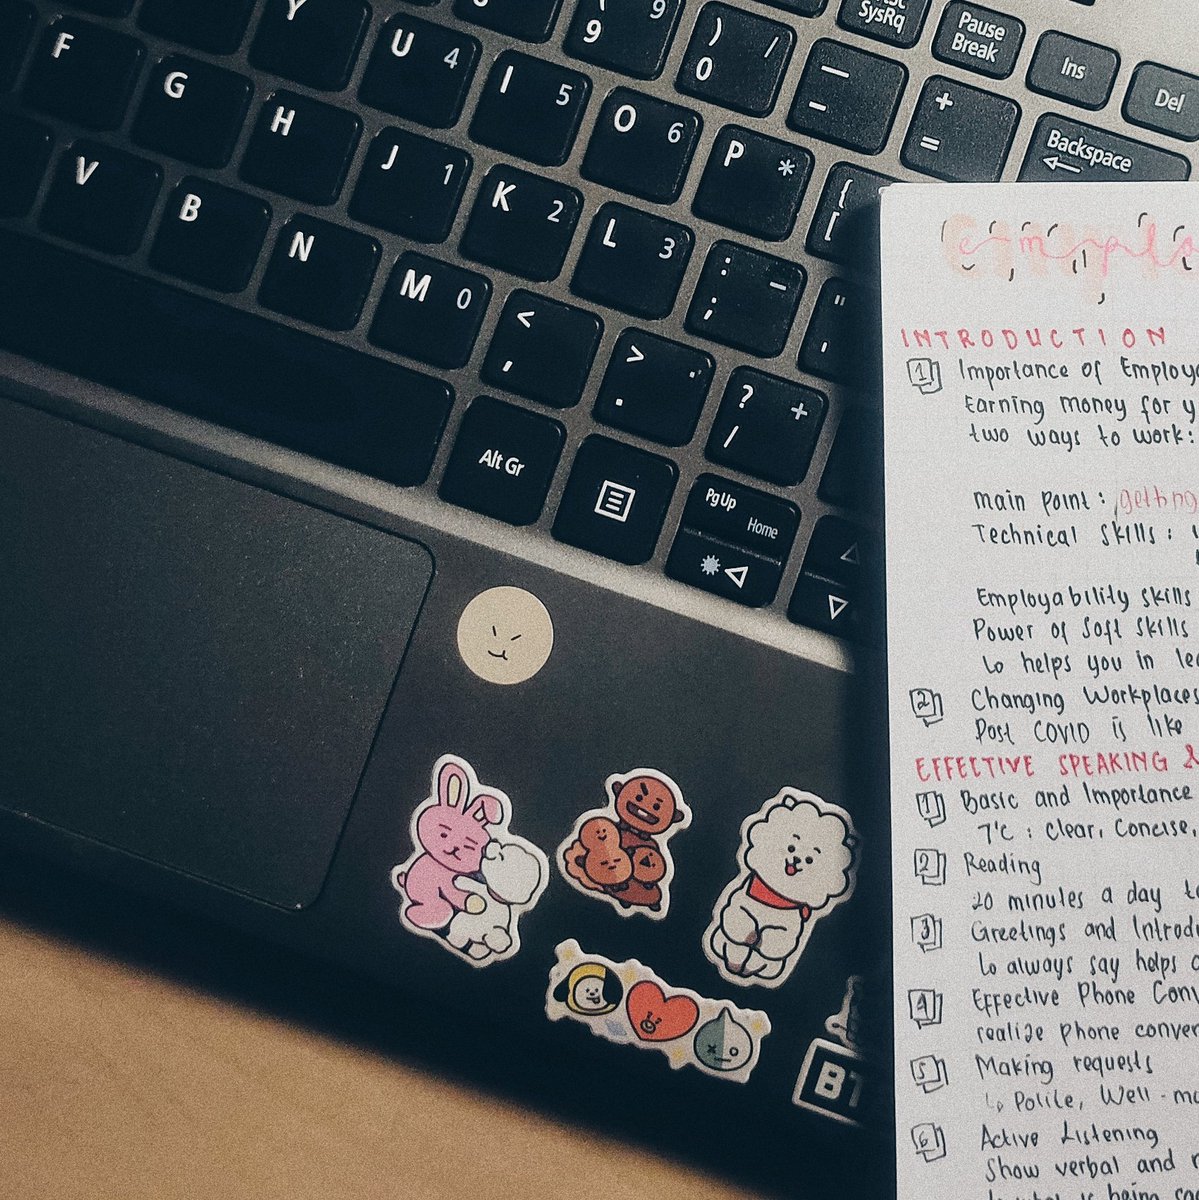 SysRq
Pause
Break
Ins
Del
Backspace
Y
U 4
I 5
O 6
P *
9 9
) /
0
— -
+ =
{ [
F
G
H
J 1
K 2
L 3
: -
;
" '
V
B
N
M 0
< ,
> . .
? +
/
Alt Gr
PgUp
Home
INTRODUCTION
1 Importance of Employa
Earning money for y
two ways to work:
main point: getting
Technical skills:
Employability skills
Power of soft skills
↳ helps you in lea
2 Changing Workplaces
Post COVID is like
EFFECTIVE SPEAKING &
1 Basic and Importance
7'c : clear, concise,
2 Reading
20 minutes a day to
3 Greetings and Introdu
↳ always say helps
4 Effective Phone Conv
realize phone conver
5 Making requests
↳ Polite, Well-ma
6 Active Listening
Show verbal and n
is being